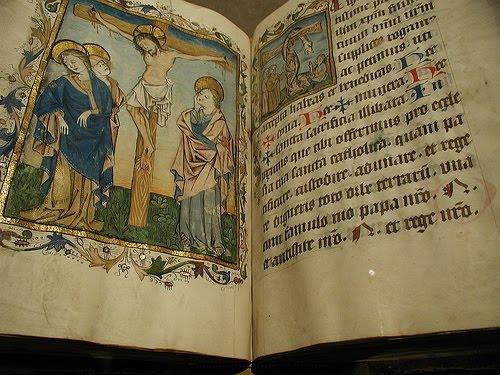 supplices rogam
ac petimus. uti
accepta habeas et benedicas. Hec
dona. Hec munera. Hec
sancta sacrificia illibata. In
primis que tibi offerimus pro eccle
sia tua sancta catholica. quam pa
cificare. custodire. adunare. et rege
re digneris toto orbe terrarū. una
cum famulo tuo papa nrō. N.
et antistite nrō. N. et rege nrō.